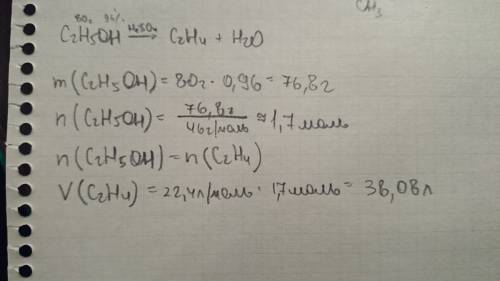 CH₃
80г 96%
C₂H₅OH —H₂SO₄→ C₂H₄ + H₂O
m(C₂H₅OH) = 80г · 0,96 = 76,8г
n(C₂H₅OH) = 76,8г / 46г/моль ≈ 1,7моль
n(C₂H₅OH) = n(C₂H₄)
V(C₂H₄) = 22,4л/моль · 1,7моль = 38,08л